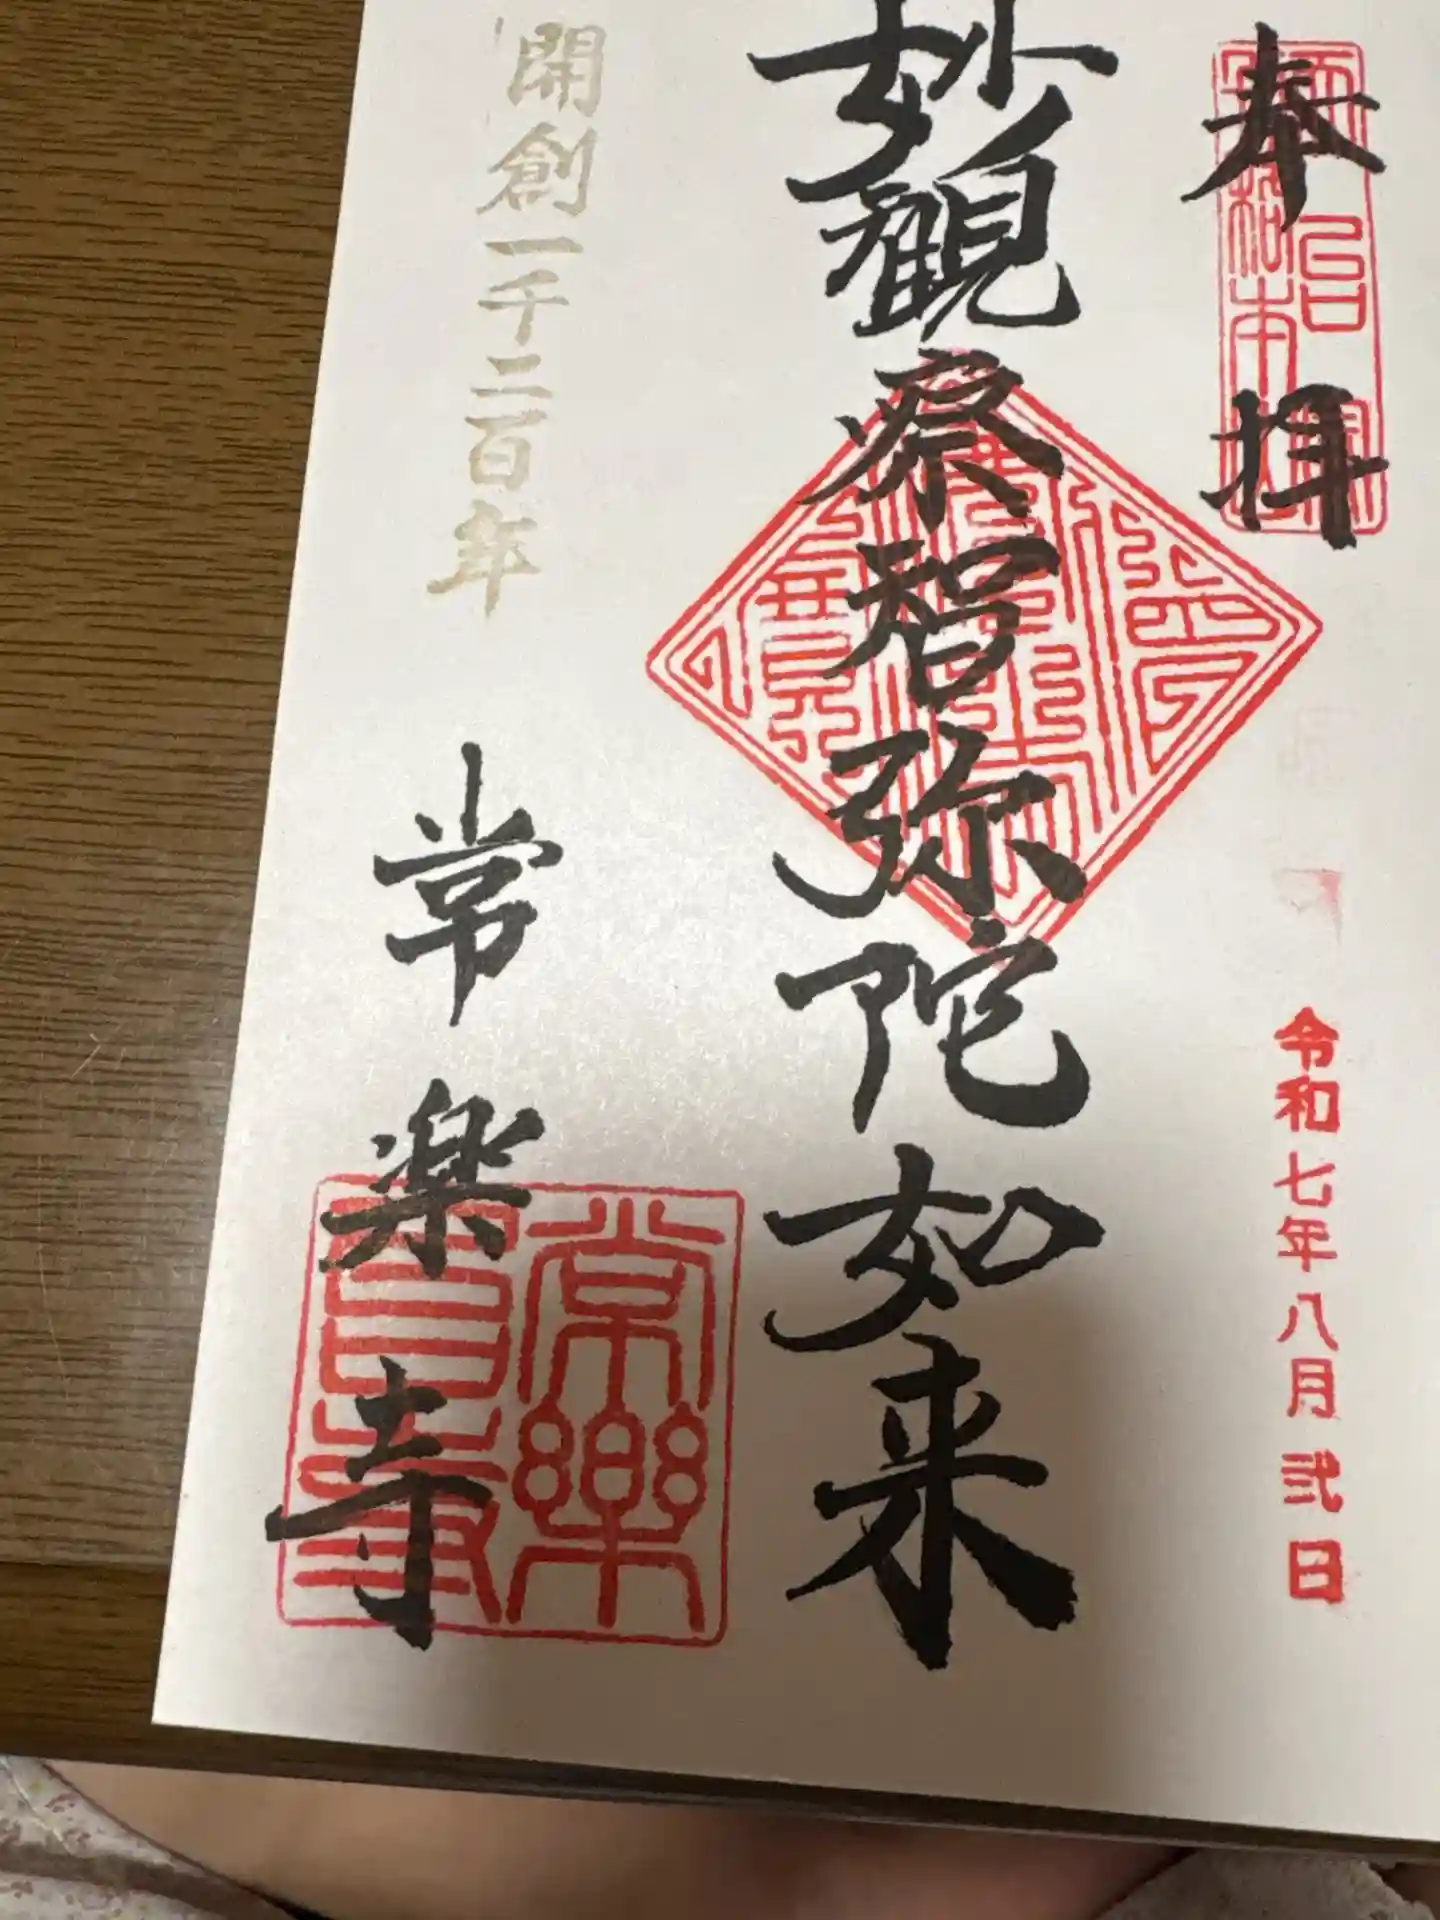 奉拝
令和七年八月弐日
妙観察智弥陀如来
開創一千二百年
常楽寺
常樂